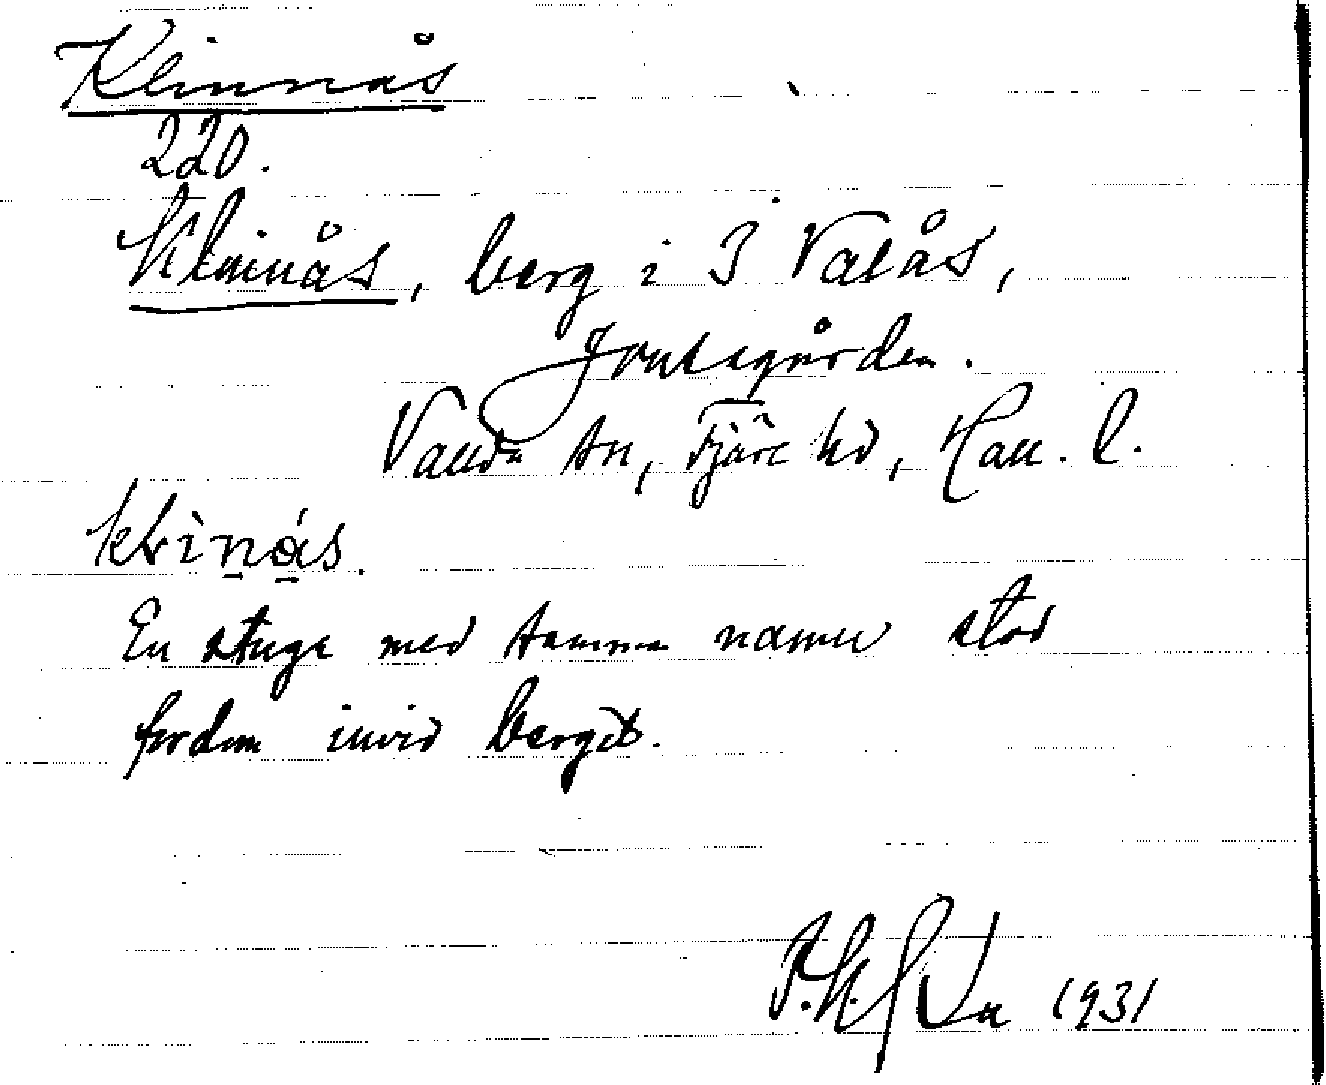 Klinnås
220.
Klinås, berg i 3 Valås,
Jontsgården.
Vallda sn, Fjäre hd, Hall. l.
klinås.
En stuga med samma namn stod
fordom invid berget.
1931